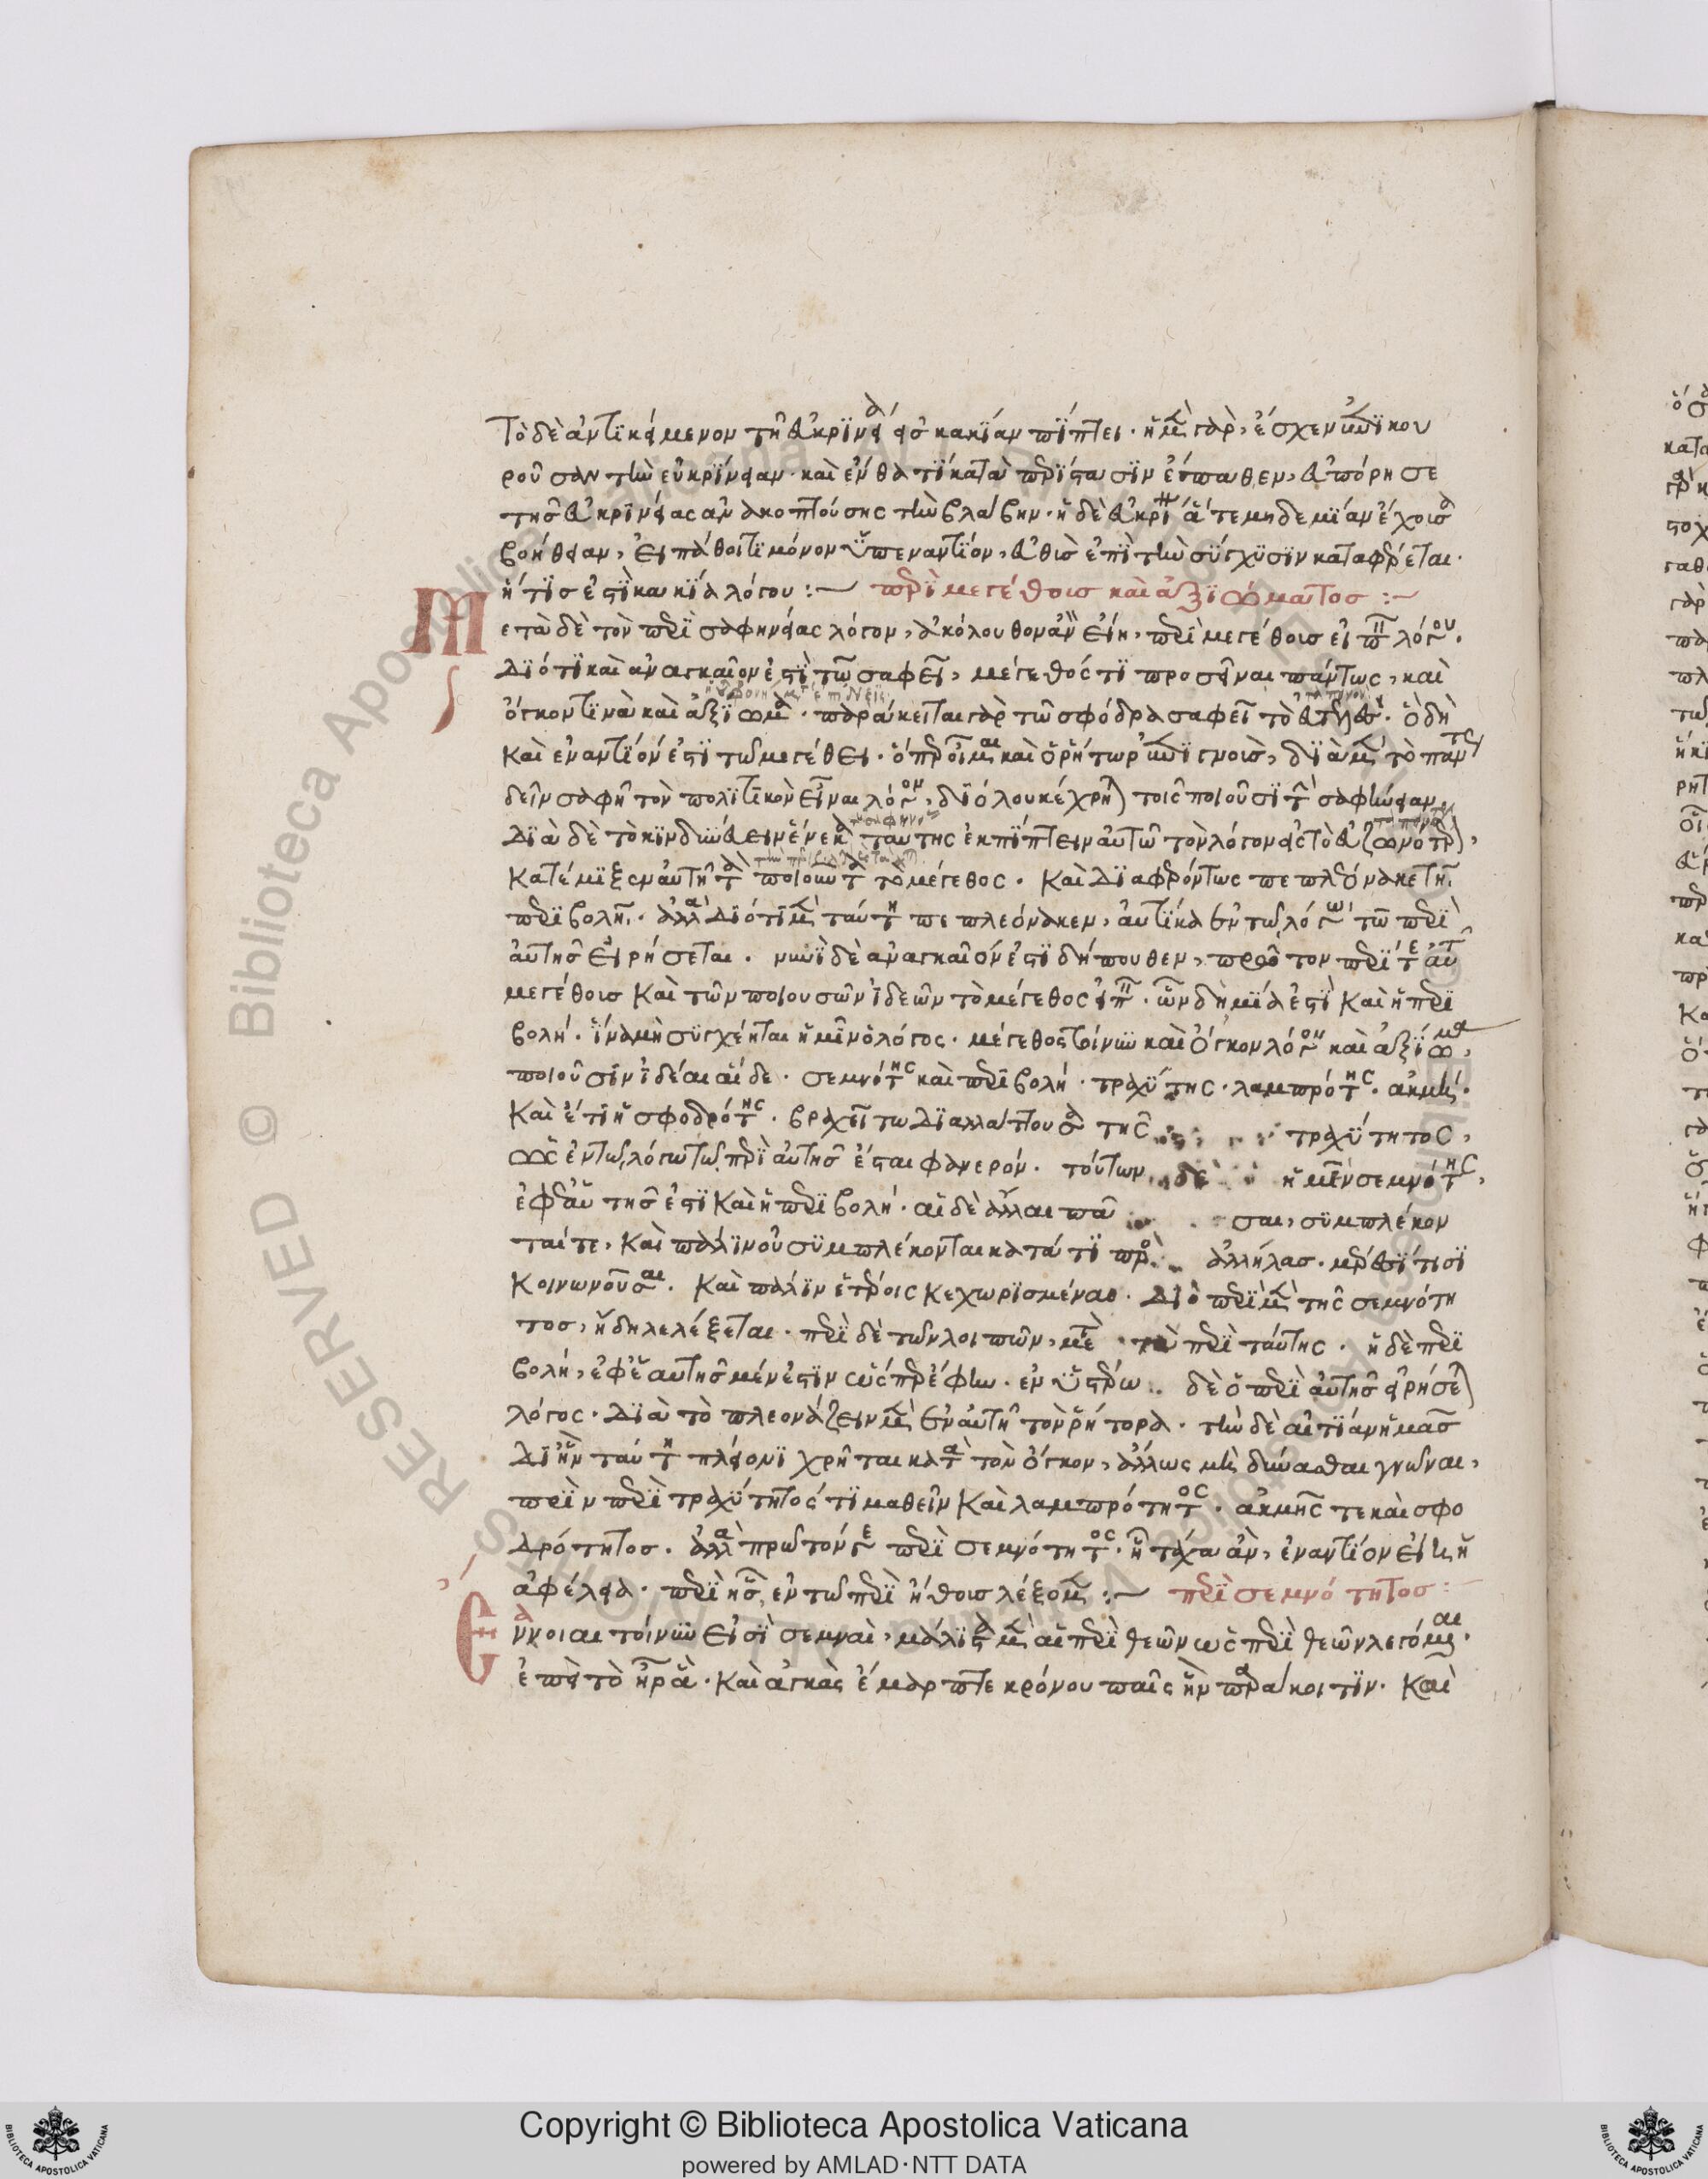 Τὸ δὲ ἀντικείμενον τῇ εὐκρινείᾳ εἰς κακίαν πίπτει· ἡ μὲν γὰρ, ἔσχεν ἐπικου
ροῦσαν τὴν εὐκρίνειαν· καὶ ἔνθά τι κατὰ περίστασιν ἔπαθεν, εὐπόρησε
τῆς εὐκρινείας ἀνακοπτούσης τὴν βλάβην· ἡ δὲ εὐκρίνεια ἅτε μηδεμίαν ἔχουσα
βοήθειαν, εἰ πάθοι τι μόνον ὑπεναντίον, εὐθὺς ἐπὶ τὴν σύγχυσιν καταφέρεται·
ἥτις ἐστὶ κακία λόγου :~ περὶ μεγέθους καὶ ἀξιώματος :~
Μετὰ δὲ τὸν περὶ σαφηνείας λόγον, ἀκόλουθον ἂν εἴη, περὶ μεγέθους εἰπεῖν λόγου·
διότι καὶ ἀναγκαῖον ἐστὶ τῷ σαφεῖ, μέγεθός τι προσεῖναι πάντως, καὶ
ὄγκον τινὰ καὶ ἀξίωμα· παράκειται γὰρ τῷ σφόδρα σαφεῖ τὸ εὐτελές· ὃ δὴ
καὶ ἐναντίον ἐστὶ τῷ μεγέθει· ὅπερ οἶμαι καὶ ὁ ῥήτωρ ἐπιγνοὺς, διὰ μὲν τὸ πάντως
δεῖν σαφῆ τὸν πολιτικὸν εἶναι λόγον, δι' ὅλου κέχρηται τοῖς ποιοῦσι τὴν σαφήνειαν·
διὰ δὲ τὸ κινδυνεύειν ἕνεκα ταύτης ἐκπίπτειν αὐτῷ τὸν λόγον εἰς τὸ
κατέμιξεν αὐτῇ τὰ ποιοῦντα τὸ μέγεθος· καὶ διαφερόντως πεπλεόνακε τῇ
περιβολῇ· ἀλλὰ διότι μὲν ταύτῃ πεπλεόνακεν, αὐτίκα ἐν τῷ λόγῳ τῷ περὶ
αὐτῆς εἰρήσεται· νυνὶ δὲ ἀναγκαῖόν ἐστι δήπουθεν, πρῶτον περί τε αὐτοῦ
μεγέθους καὶ τῶν ποιουσῶν ἰδεῶν τὸ μέγεθος εἰπεῖν· ὧν δὴ μία ἐστὶ καὶ ἡ περι
βολή· ἵνα μὴ συγχέηται ἡμῖν ὁ λόγος· μέγεθος τοίνυν καὶ ὄγκον λόγου καὶ ἀξίωμα,
ποιοῦσιν ἰδέαι αἵδε· σεμνότης καὶ περιβολή· τραχύτης· λαμπρότης· ἀκμή·
καὶ ἔτι ἡ σφοδρότης· βραχεῖ τῳ διαλλάττουσα τῆς τραχύτητος,
ὡς ἐν τῷ λόγῳ τῷ περὶ αὐτῆς ἔσται φανερόν· τούτων δὲ ἡ μὲν σεμνότης,
ἐφ' αὑτῆς ἐστι καὶ ἡ περιβολή· αἱ δὲ ἄλλαι πᾶ σαι, συμπλέκον
ταί τε, καὶ πάλιν οὐ συμπλέκονται κατά τι πρὸς ἀλλήλας· μέρεσί τισι
κοινωνοῦσαι· καὶ πάλιν ἑτέροις κεχωρισμέναι· διὸ περὶ μὲν τῆς σεμνότη
τος, ἤδη λελέξεται· περὶ δὲ τῶν λοιπῶν, μετὰ τὰ περὶ ταύτης· ἡ δὲ περι
βολή, ἐφ' ἑαυτῆς μέν ἐστιν ὥσπερ ἔφην· ἐν ὑστέρῳ δὲ ὁ περὶ αὐτῆς εἰρήσεται
λόγος· διὰ τὸ πλεονάζειν μὲν ἐν αὐτῇ τὸν ῥήτορα· τὴν δὲ αἰτίαν ἡμᾶς
δι' ἣν ταύτῃ πλείονι χρῆται κατὰ τὸν ὄγκον, ἄλλως μὴ δύνασθαι γνῶναι,
πρὶν περὶ τραχύτητός τι μαθεῖν καὶ λαμπρότητος· ἀκμῆς τε καὶ σφο
δρότητος· ἀλλὰ πρῶτόν γε περὶ σεμνότητος· ᾗ τάχα ἂν, ἐναντίον εἴη ἡ
ἀφέλεια· περὶ ἧς, ἐν τῷ περὶ ἤθους λέξομεν :~ περὶ σεμνότητος :~
Ἔννοιαι τοίνυν εἰσὶ σεμναὶ, μάλιστα μὲν αἱ περὶ θεῶν ὡς περὶ θεῶν λεγόμεναι·
ἐπεὶ τὸ ἦ ῥα· καὶ ἀγκὰς ἔμαρπτε κρόνου παῖς ἣν παράκοιτιν· καὶ